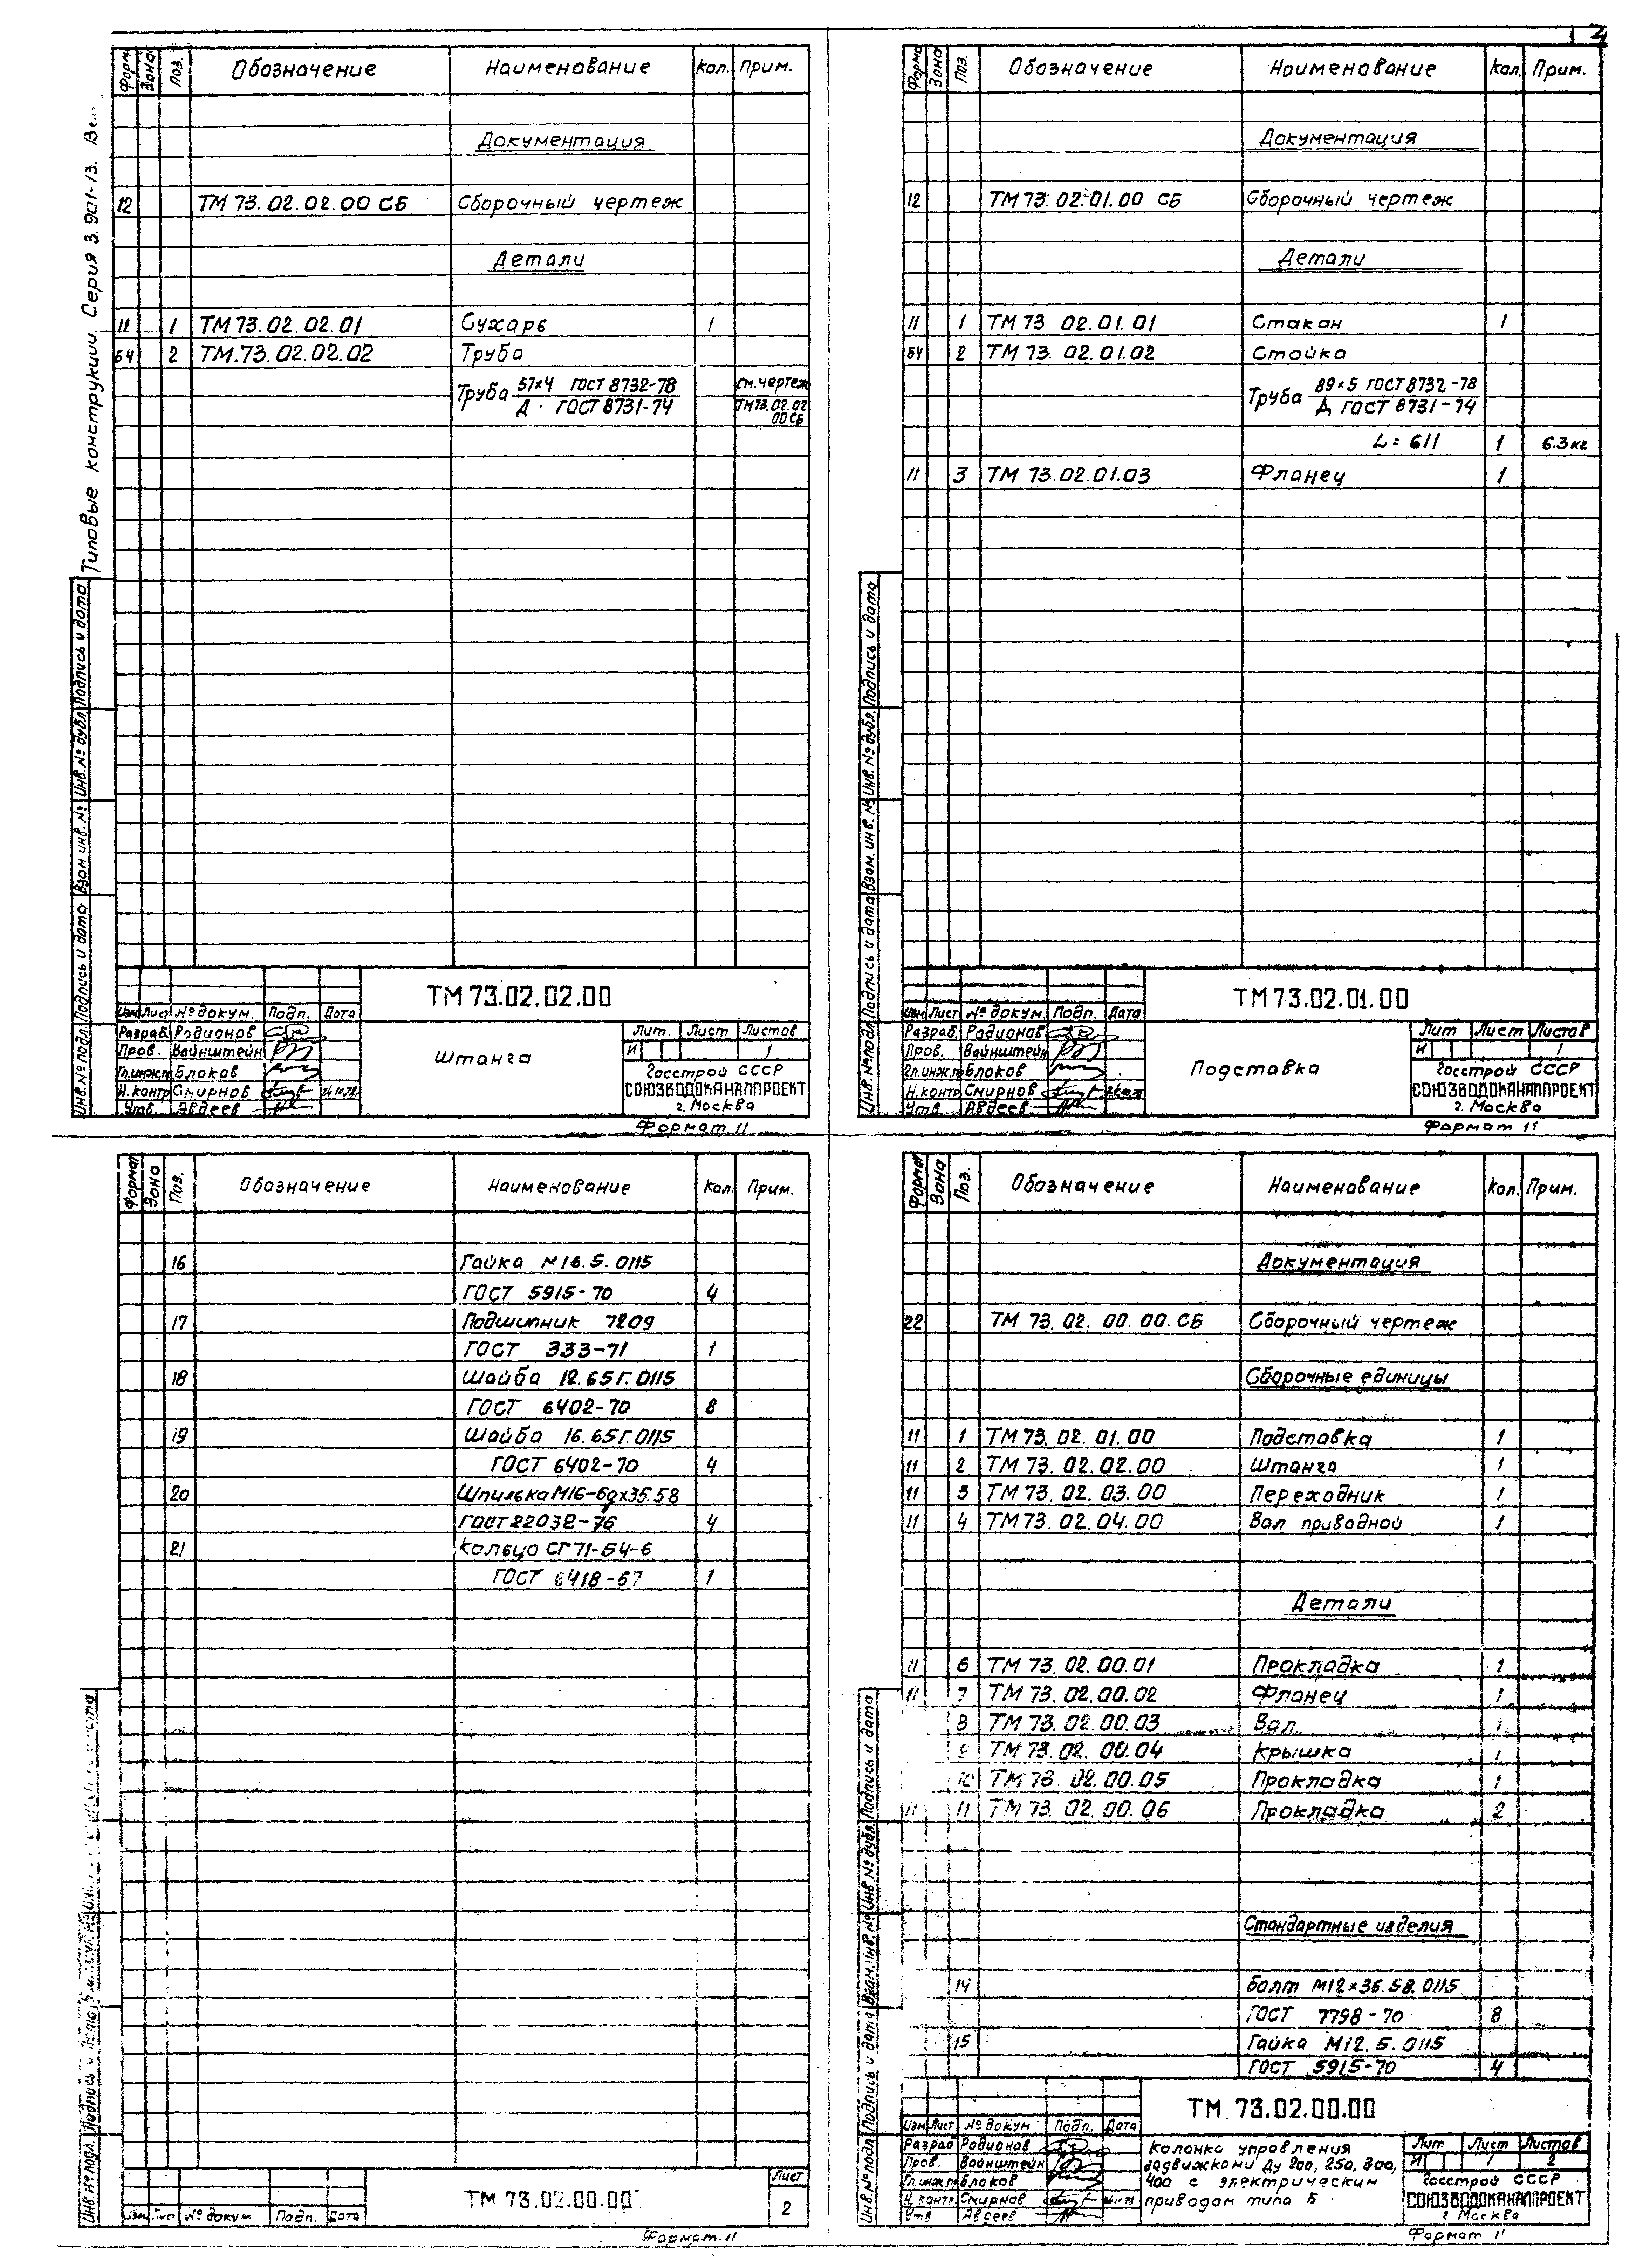 Типовые конструкции. Серия 3.901-13.
Зона Поз. Обозначение Наименование Кол. Прим.
Документация
12 ТМ 73.02.02.00 СБ Сборочный чертеж
Детали
11 1 ТМ 73.02.02.01 Сухарь 1
БЧ 2 ТМ.73.02.02.02 Труба
Труба 57×4 ГОСТ 8732-78 см.чертеж
Д · ГОСТ 8731-74 ТМ73.02.02
00 СБ
Инв.№ подл. Подпись и дата Взам инв. № Инв.№ дубл. Подпись и дата
ТМ 73.02.02.00
Изм Лист № докум. Подп. Дата
Разраб. Родионов
Пров. Вайнштейн
Гл.инж.п Блоков
Н.контр Смирнов
Утв. Авдеев
Штанга
Лит. Лист Листов
И 1
Госстрой СССР
СОЮЗВОДОКАНАЛПРОЕКТ
г. Москва
Формат 11
Форма Зона Поз. Обозначение Наименование Кол. Прим.
Документация
12 ТМ 73.02.01.00 СБ Сборочный чертеж
Детали
11 1 ТМ 73 02.01.01 Стакан 1
БЧ 2 ТМ 73. 02.01.02 Стойка
Труба 89×5 ГОСТ 8732-78
Д ГОСТ 8731-74
L = 611 1 6.3 кг
11 3 ТМ 73.02.01.03 Фланец 1
Инв.№ подл Подпись и дата Взам. инв. № Инв.№ дубл. Подпись и дата
ТМ 73.02.01.00
Изм Лист № докум. Подп. Дата
Разраб. Родионов
Пров. Вайнштейн
Гл.инж.п Блоков
Н.контр Смирнов
Утв. Авдеев
Подставка
Лит Лист Листов
И 1
Госстрой СССР
СОЮЗВОДОКАНАЛПРОЕКТ
г. Москва
Формат 11
Формат Зона Поз. Обозначение Наименование Кол. Прим.
16 Гайка М16.5.0115
ГОСТ 5915-70 4
17 Подшипник 7209
ГОСТ 333-71 1
18 Шайба 12.65Г.0115
ГОСТ 6402-70 8
19 Шайба 16.65Г.0115
ГОСТ 6402-70 4
20 Шпилька М16-6g×35.58
ГОСТ 22032-76 4
21 Кольцо СГ71-54-6
ГОСТ 6418-67 1
Инв.№ подл. Подпись и
ТМ 73.02.00.00
Лист
2
Изм Лист № докум Подп. Дата
Формат 11
Формат Зона Поз. Обозначение Наименование Кол. Прим.
Документация
22 ТМ 73.02.00.00.СБ Сборочный чертеж
Сборочные единицы
11 1 ТМ 73.02.01.00 Подставка 1
11 2 ТМ 73.02.02.00 Штанга 1
11 3 ТМ 73.02.03.00 Переходник 1
11 4 ТМ 73.02.04.00 Вал приводной 1
Детали
11 6 ТМ 73.02.00.01 Прокладка 1
11 7 ТМ 73.02.00.02 Фланец 1
8 ТМ 73.02.00.03 Вал 1
9 ТМ 73.02.00.04 Крышка 1
10 ТМ 73.02.00.05 Прокладка 1
11 11 ТМ 73.02.00.06 Прокладка 2
Стандартные изделия
14 Болт М12×36.58.0115
ГОСТ 7798-70 8
15 Гайка М12.5.0115
ГОСТ 5915-70 4
Инв.№ подл Подпись и дата Взам. инв. № Инв.№ дубл. Подпись и дата
ТМ 73.02.00.00
Изм Лист № докум Подп. Дата
Разраб Родионов
Пров. Вайнштейн
Гл.инж.п Блоков
Н.контр. Смирнов
Утв Авдеев
Колонка управления
задвижками Ду 200, 250, 300,
400 с электрическим
приводом типа Б
Лит Лист Листов
И 1 2
Госстрой СССР
СОЮЗВОДОКАНАЛПРОЕКТ
г Москва
Формат 11